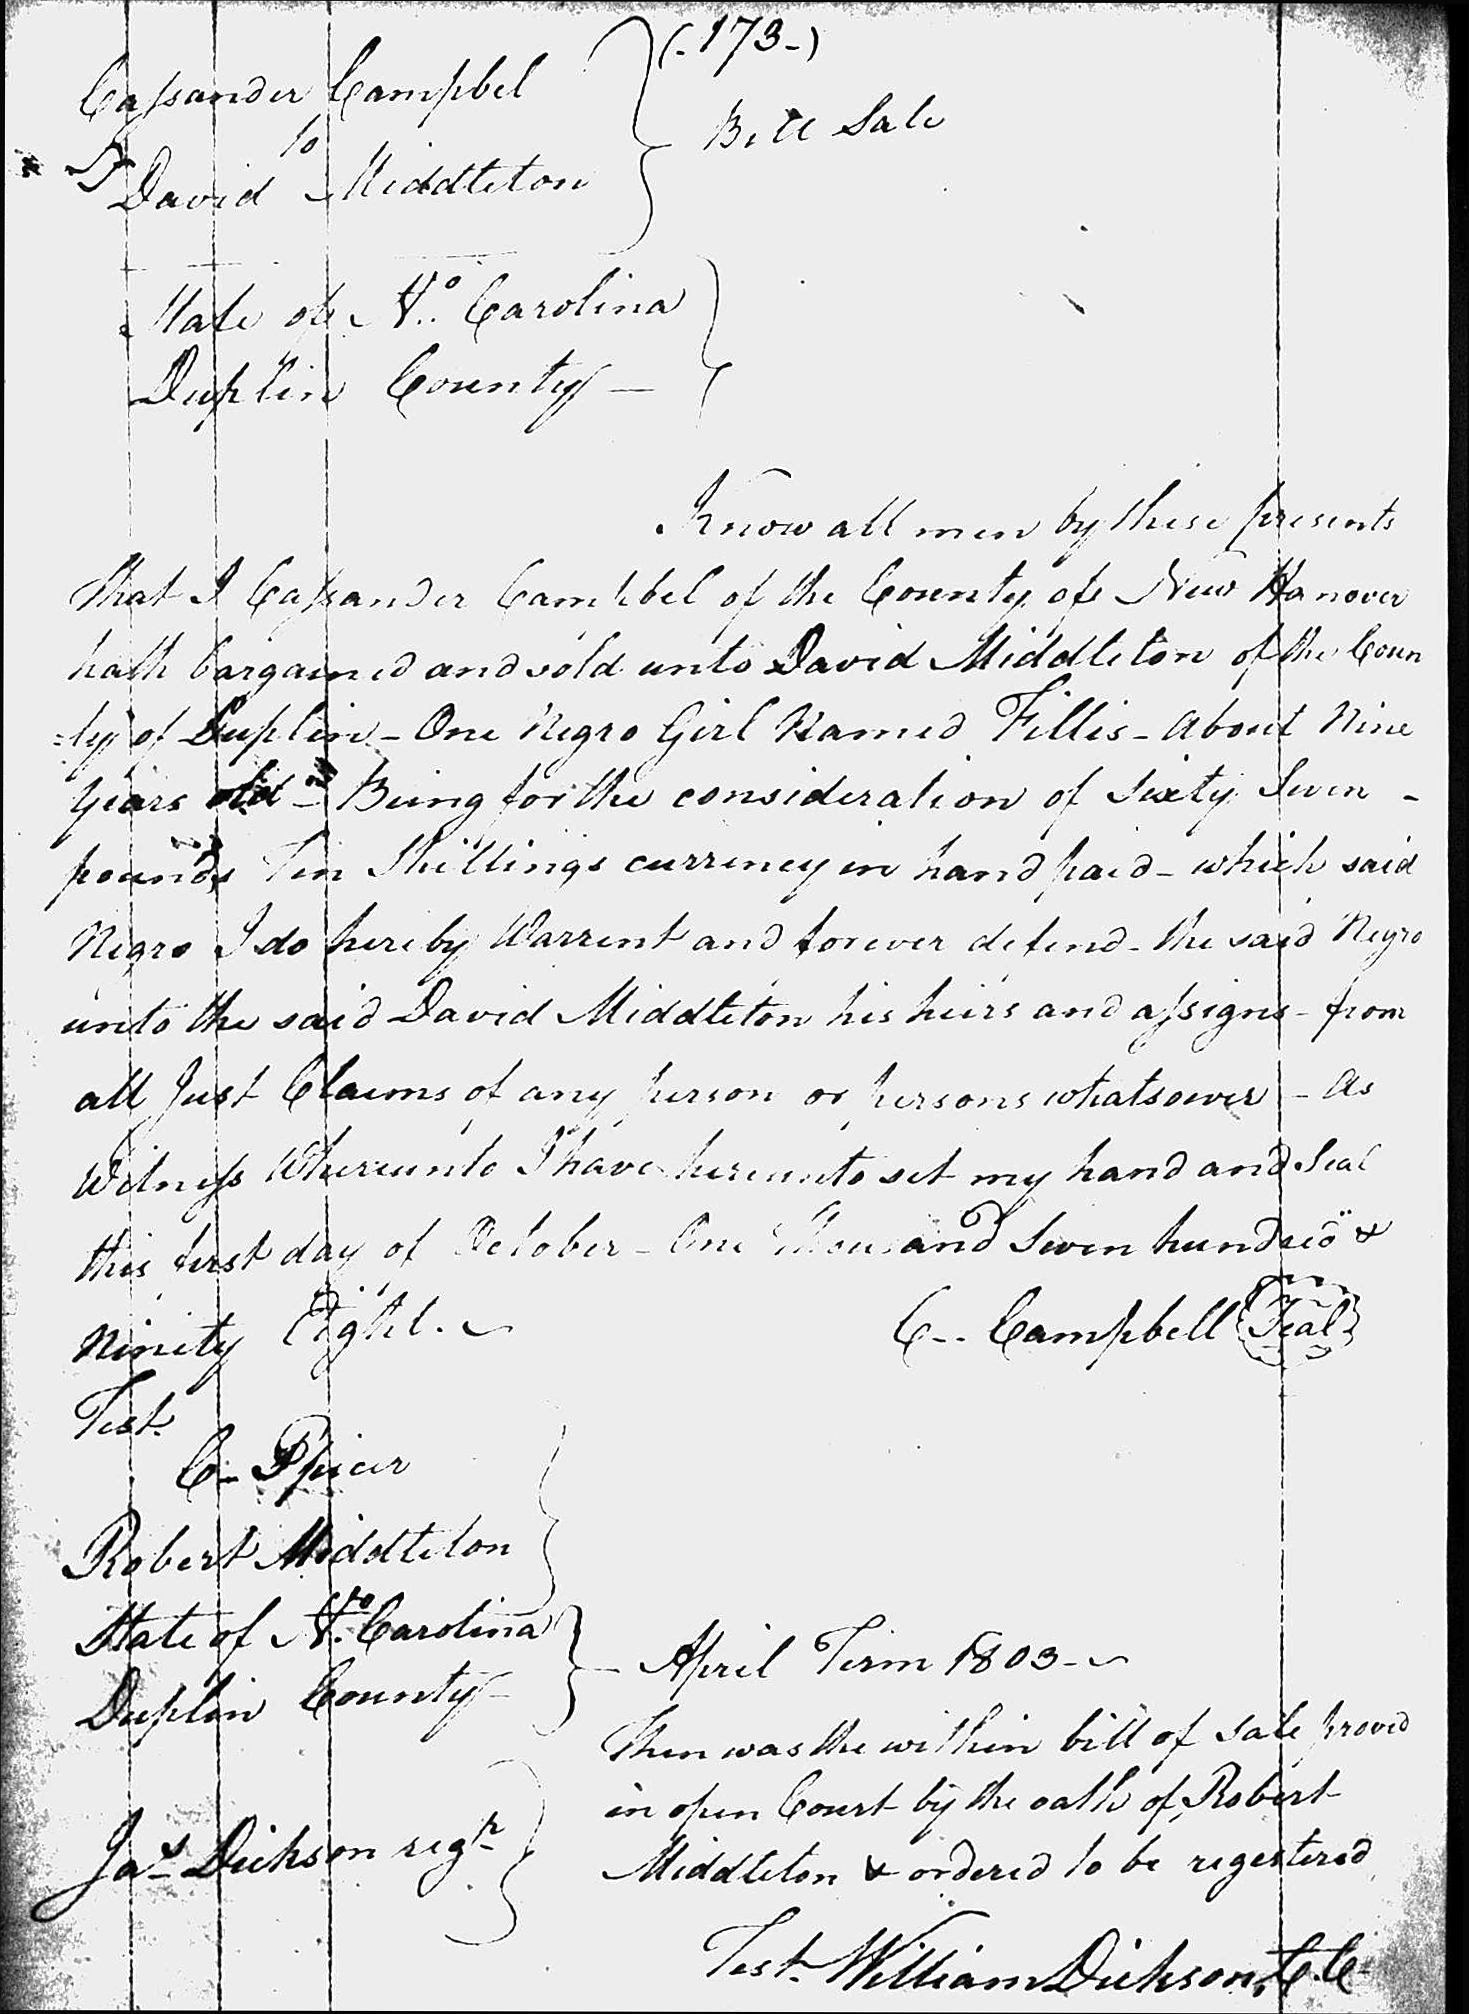 (-173-)
Cassander Campbel
to
David Middleton
Bill Sale
State of No. Carolina
Duplin County —
Know all men by these presents
that I Cassander Campbel of the County of New Hanover
hath bargained and sold unto David Middleton of the Coun
=ty of Duplin - One Negro Girl Named Fillis - About Nine
Years old - Being for the consideration of Sixty Seven -
pounds Ten Shillings currency in hand paid - which said
Negro I do hereby Warrent and forever defend - the said Negro
unto the said David Middleton his heirs and assigns - from
all Just Claims of any person or persons whatsoever - As
Witness Whereunto I have hereunto set my hand and Seal
this first day of October - One Thousand Seven hundred &
Ninety Eight.
C-. Campbell Seal
Test.
C- Spicer
Robert Middleton
State of No. Carolina
Duplin County -
April Term 1803 -
Then was the within bill of Sale proved
in open Court by the oath of Robert
Middleton & ordered to be regestered
Jas Dickson regr
Test. William Dickson, C.C.